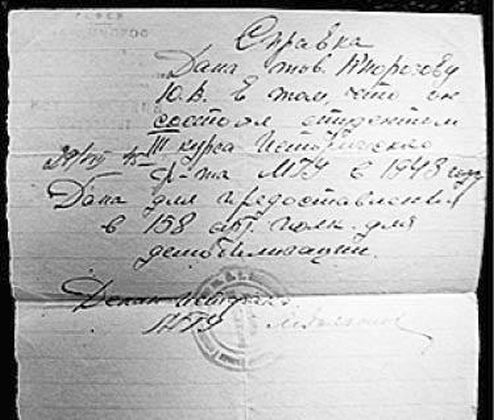 Справка
Дана тов. Кнорозову
Ю.В. в том, что он
состоял студентом
III курса Исторического
ф-та МГУ в 1943 году
Дана для предоставления
в 158 арт. полк для
демобилизации.
Декан Истфака
МГУ